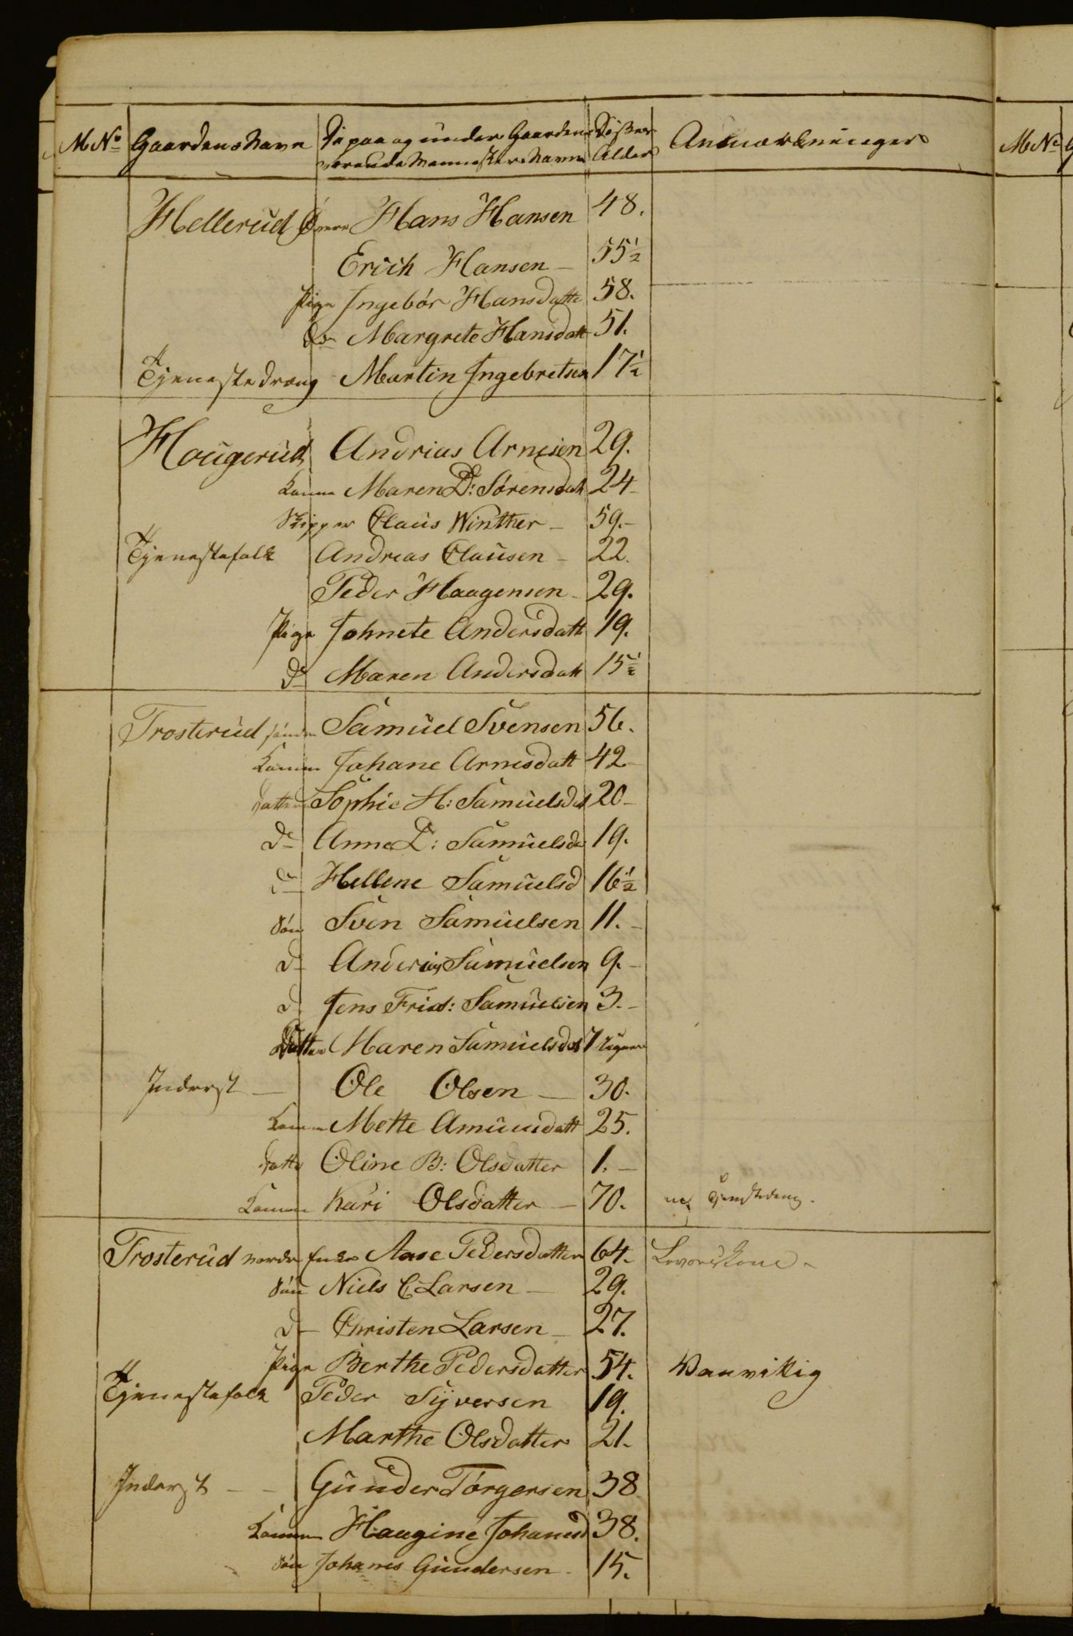 MNo Gaardens Navn De paa og under Gaarden Disses Anmærkninger MNo
værende Menneskers Navne Alder
Hellerud Øvre Hans Hansen 48.
Erich Hansen — 55½
Pige Ingebór Hansdatte 58.
Do Margrete Hansdatt 51.
Tjenestedreng Martin Ingebretsen 17½
Hougerud Andrias Arnesen 29.
Konen Maren D: Sørensdatt 24
Skipper Claus Winther — 59.–
Tjenestefolk Andreas Clausen – 22.
Peder Haagensen – 29.
Pige Johnete Andersdatt 19.
do Maren Andersdatt 15½
Trosterud søndre Samuel Svensen 56.
Konen Johane Arnesdatt 42
Datter Sophie H: Samuelsdat 20–
Do Anne D: Samuelsda 19.
do Hellene Samuelsd 16½
Søn Sven Samuelsen 11. –
d– Anderias Samuelsen 9.–
d. Jens Frid: Samuelsen 3.–
Datter Maren Samuelsdat 7 Uger
Inderst — Ole Olsen — 30.
Konen Mette Amundsdatt 25.
Datte Oline B: Olsdatter 1.—
Konen Kari Olsdatter — 70.
Trosterud nordre Enke Aase Pedersdatter 64.
Søn Niels C Larsen — 29.
d– Christen Larsen – 27.
Pige Berthe Pedersdatter 54. Vanvittig
Tjenestefolk Peder Syversen 19.
Marthe Olsdatter 21.
Inderst – – Gunder Torgersen 38
Konen Haagine Johannesd 38.
Søn Johanes Gundersen – 15.